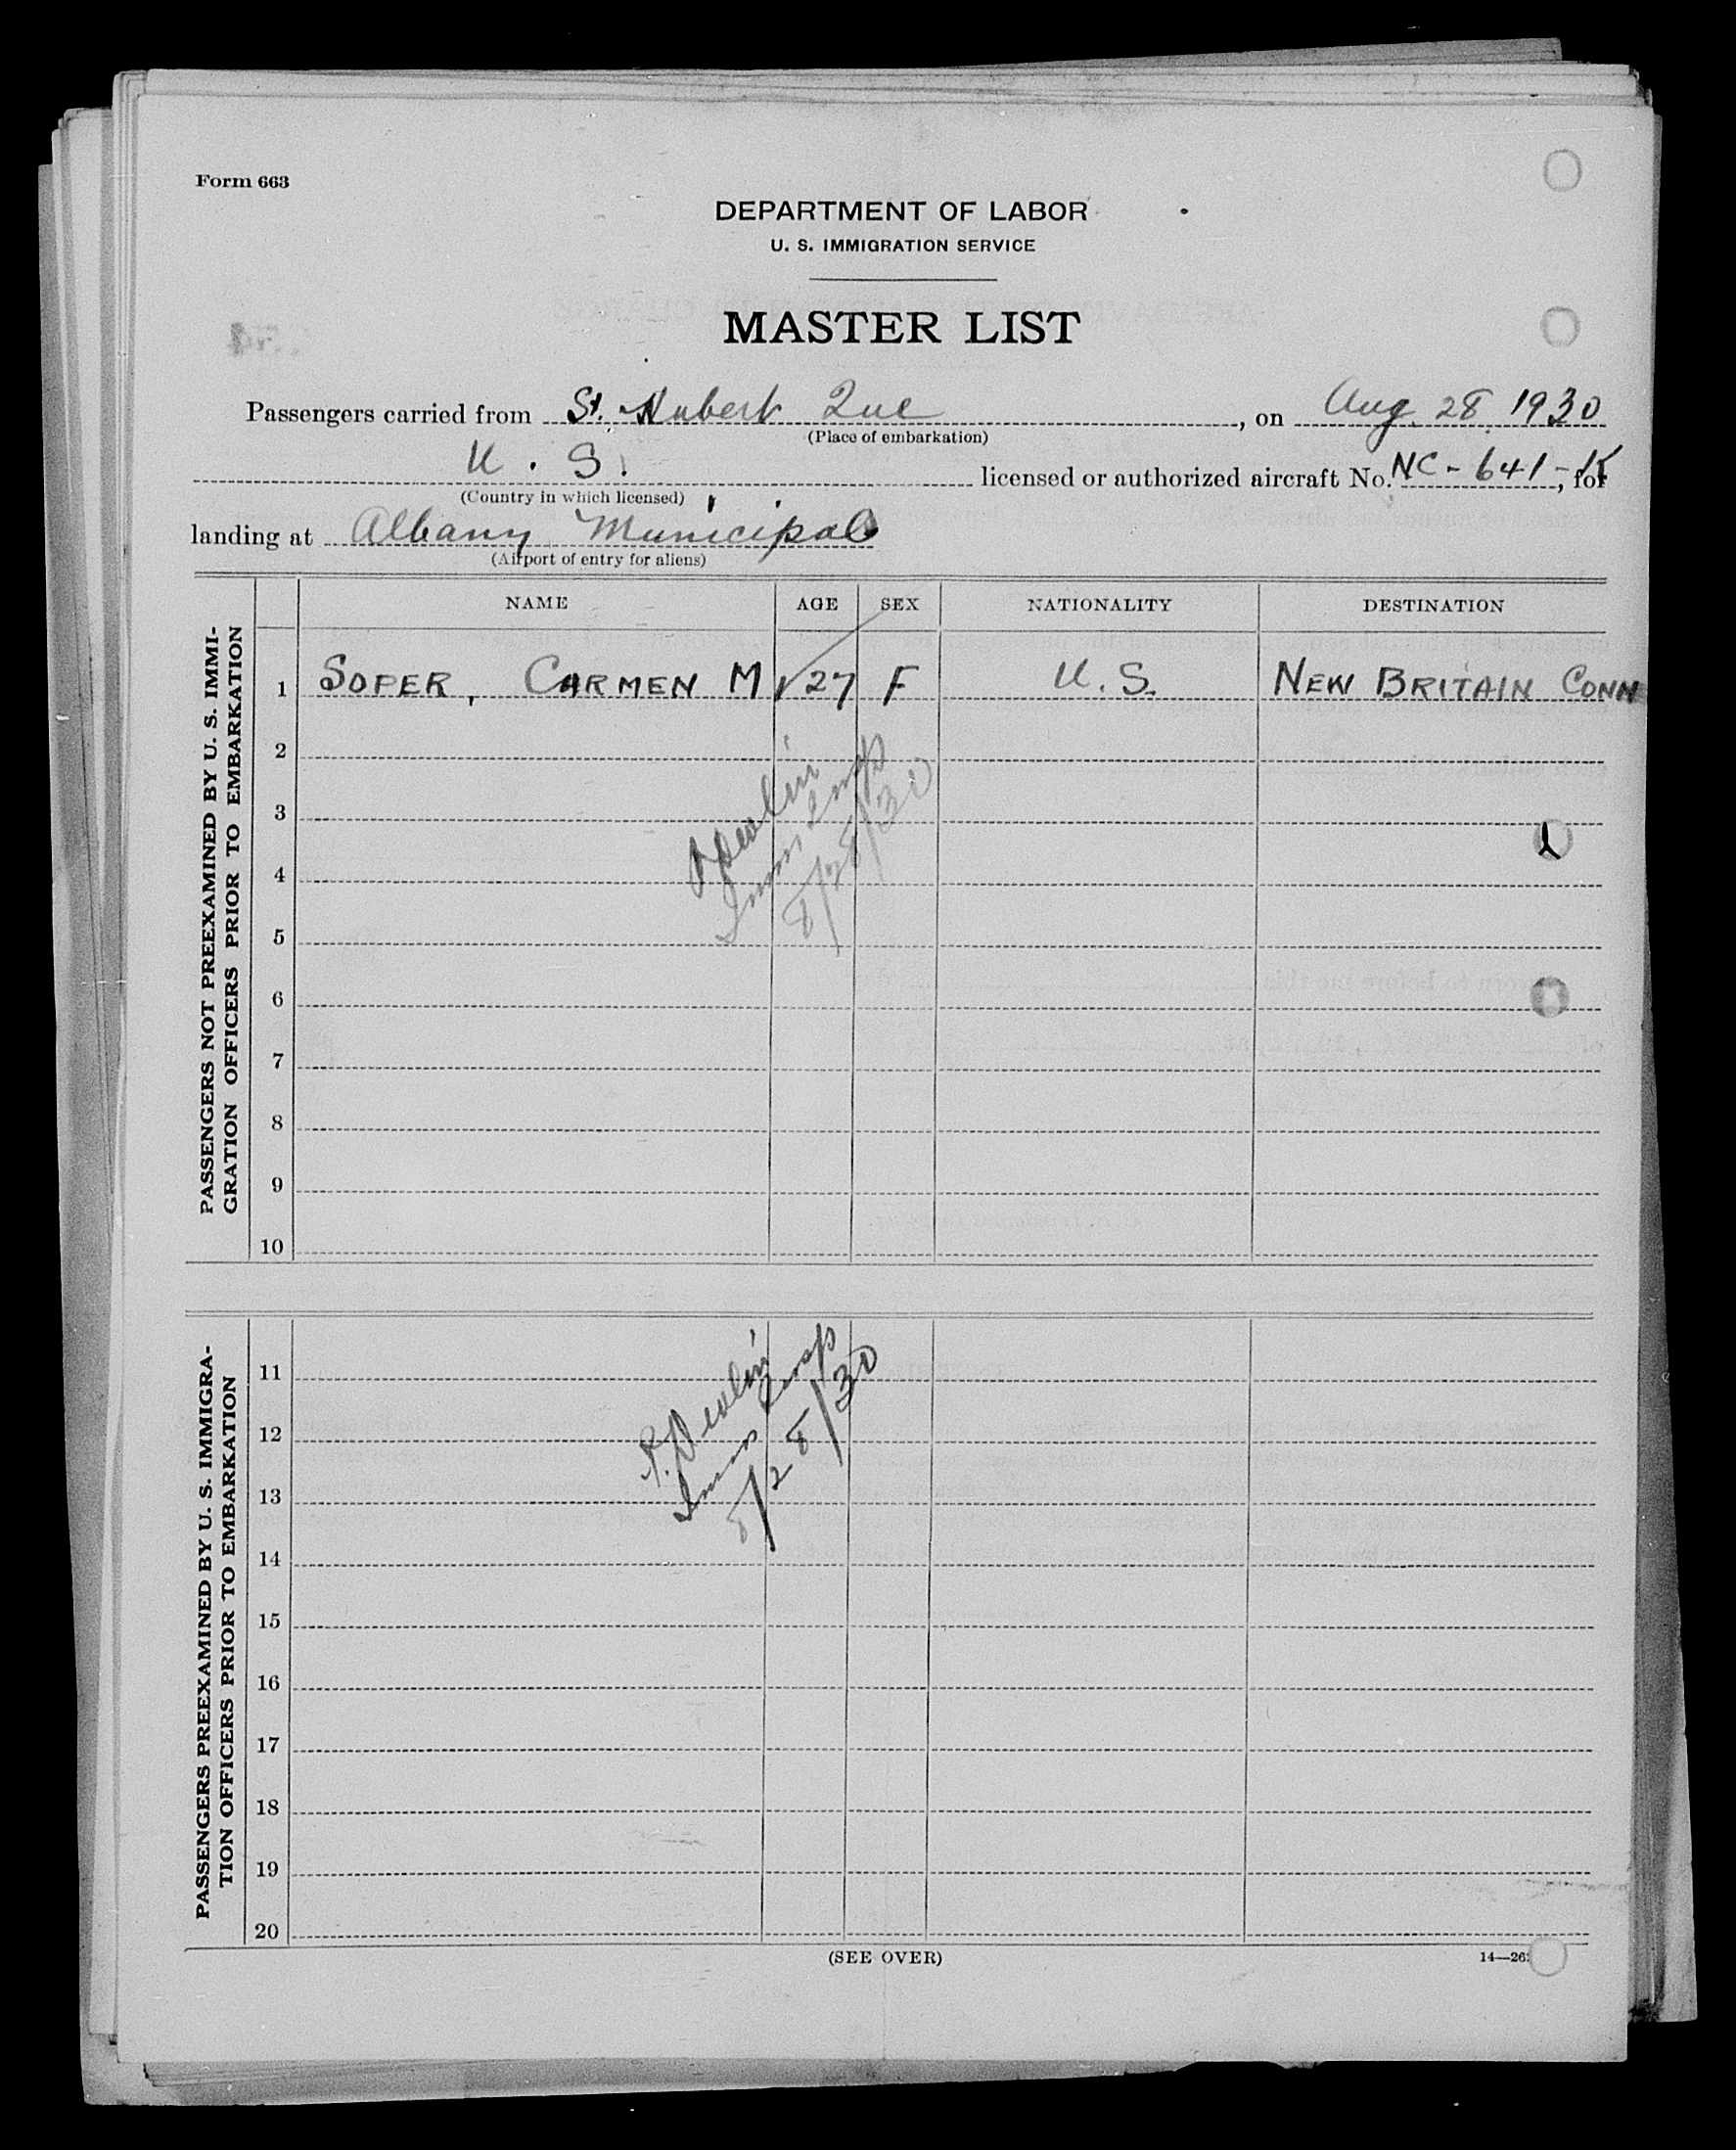 Form 663
DEPARTMENT OF LABOR
U. S. IMMIGRATION SERVICE
MASTER LIST
Passengers carried from St. Hubert Que, on Aug. 28, 1930
(Place of embarkation)
U. S. licensed or authorized aircraft No. NC-641-K, for
(Country in which licensed)
landing at Albany Municipal
(Airport of entry for aliens)
NAME AGE SEX NATIONALITY DESTINATION
PASSENGERS NOT PREEXAMINED BY U. S. IMMI-
GRATION OFFICERS PRIOR TO EMBARKATION
1 SOPER, CARMEN M 27 F U. S. NEW BRITAIN CONN
2
3
4
5
6
7
8
9
10
Devlin
Imm Insp
8/28/30
PASSENGERS PREEXAMINED BY U. S. IMMIGRA-
TION OFFICERS PRIOR TO EMBARKATION
11
12
13
14
15
16
17
18
19
20
P. Devlin
Imm Insp
8/28/30
(SEE OVER)
14—26